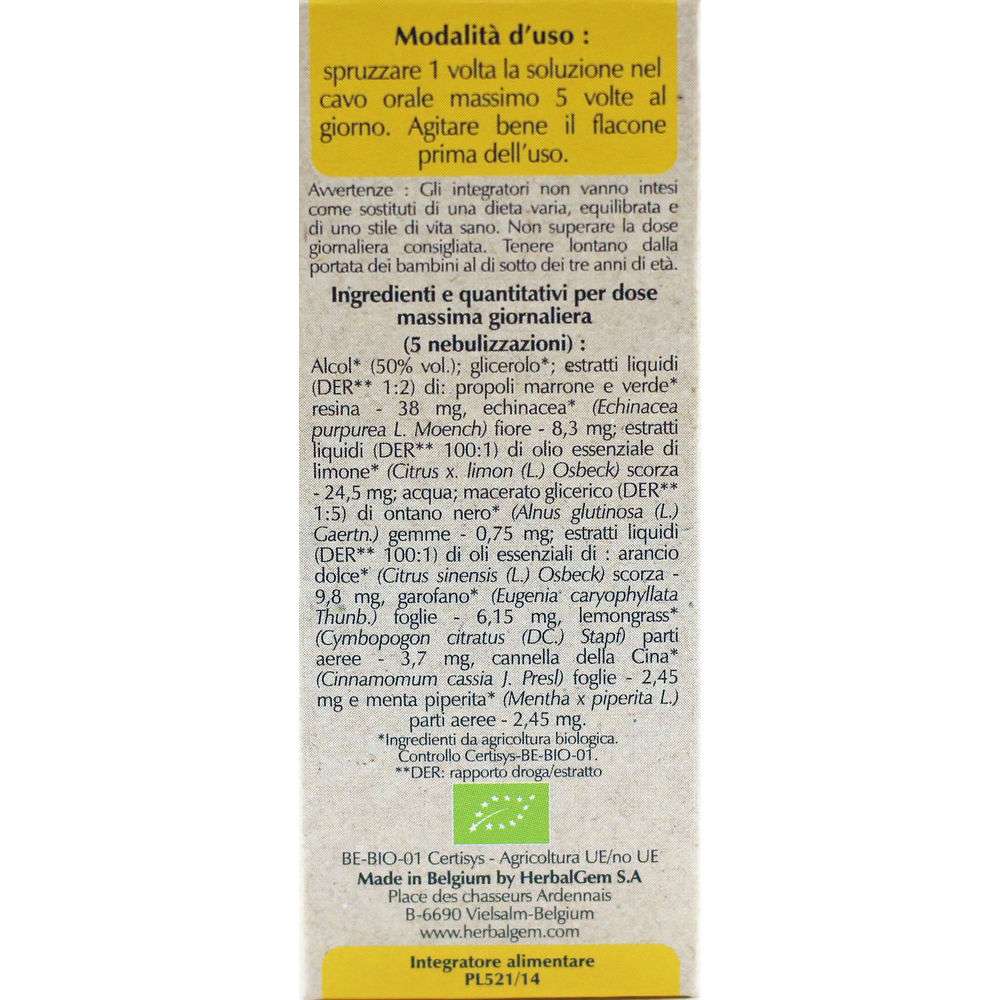 Modalità d'uso :
spruzzare 1 volta la soluzione nel
cavo orale massimo 5 volte al
giorno. Agitare bene il flacone
prima dell'uso.
Avvertenze : Gli integratori non vanno intesi
come sostituti di una dieta varia, equilibrata e
di uno stile di vita sano. Non superare la dose
giornaliera consigliata. Tenere lontano dalla
portata dei bambini al di sotto dei tre anni di età.
Ingredienti e quantitativi per dose
massima giornaliera
(5 nebulizzazioni) :
Alcol* (50% vol.); glicerolo*; estratti liquidi
(DER** 1:2) di: propoli marrone e verde*
resina - 38 mg, echinacea* (Echinacea
purpurea L. Moench) fiore - 8,3 mg; estratti
liquidi (DER** 100:1) di olio essenziale di
limone* (Citrus x. limon (L.) Osbeck) scorza
- 24,5 mg; acqua; macerato glicerico (DER**
1:5) di ontano nero* (Alnus glutinosa (L.)
Gaertn.) gemme - 0,75 mg; estratti liquidi
(DER** 100:1) di oli essenziali di : arancio
dolce* (Citrus sinensis (L.) Osbeck) scorza -
9,8 mg, garofano* (Eugenia caryophyllata
Thunb.) foglie - 6,15 mg, lemongrass*
(Cymbopogon citratus (DC.) Stapf) parti
aeree - 3,7 mg, cannella della Cina*
(Cinnamomum cassia J. Presl) foglie - 2,45
mg e menta piperita* (Mentha x piperita L.)
parti aeree - 2,45 mg.
*Ingredienti da agricoltura biologica.
Controllo Certisys-BE-BIO-01.
**DER: rapporto droga/estratto
BE-BIO-01 Certisys - Agricoltura UE/no UE
Made in Belgium by HerbalGem S.A
Place des chasseurs Ardennais
B-6690 Vielsalm-Belgium
www.herbalgem.com
Integratore alimentare
PL521/14